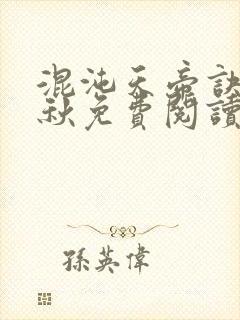 混沌天帝訣
秋免費閱讀
孫英偉